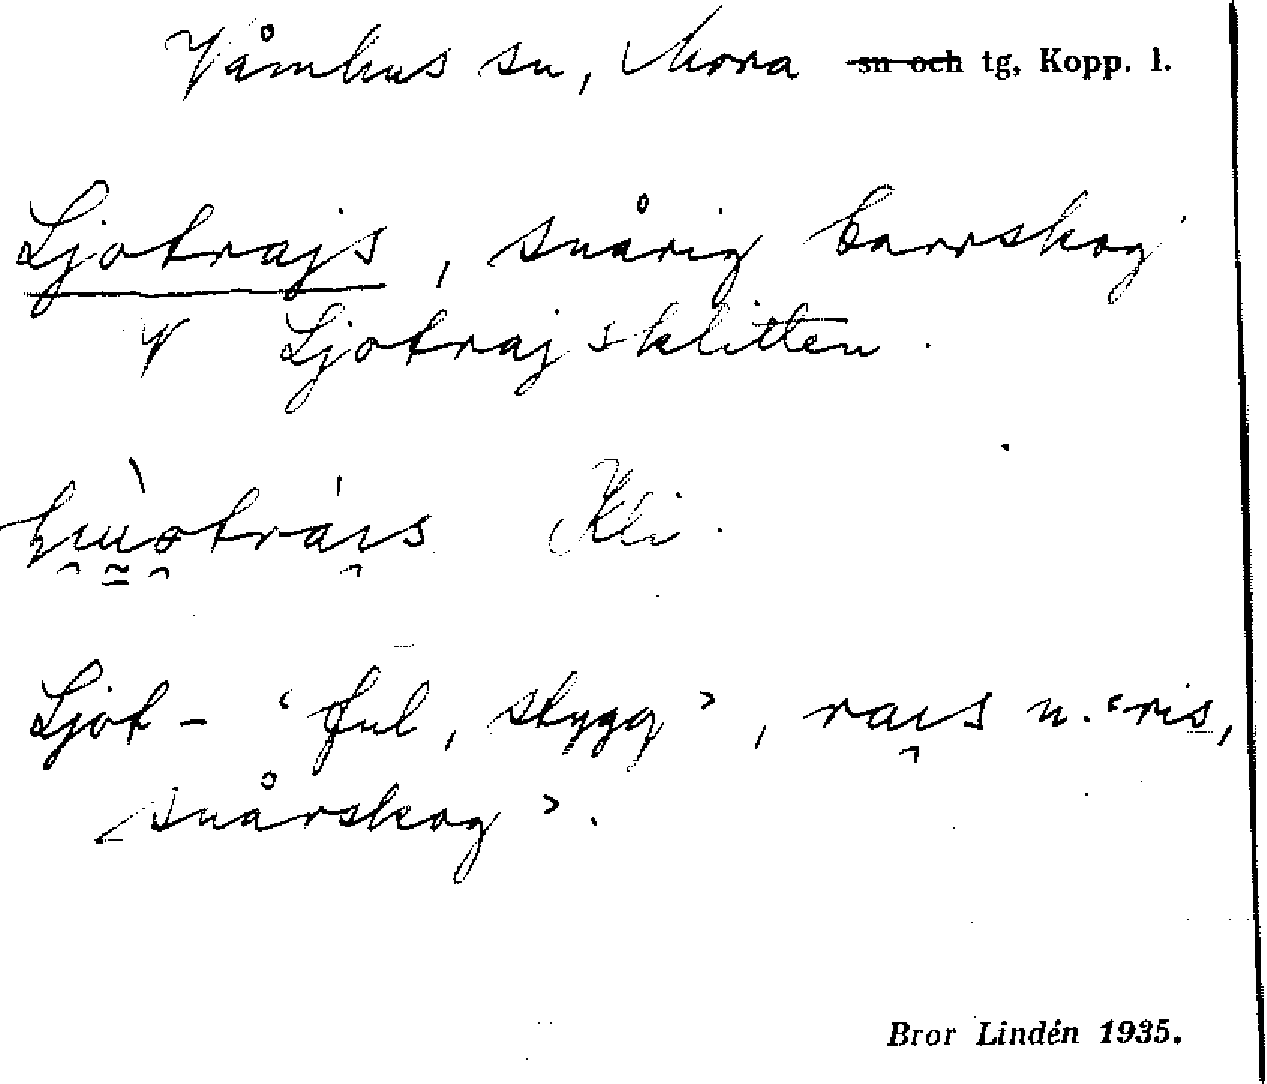 Våmhus sn, Mora sn och tg, Kopp. l.
Ljotrajs, snårig barrskog
V Ljotrajsklitten.
Kli.
Ljot- ‘ful, stygg’, rais n. ‘ris,
snårskog’.
Bror Lindén 1935.